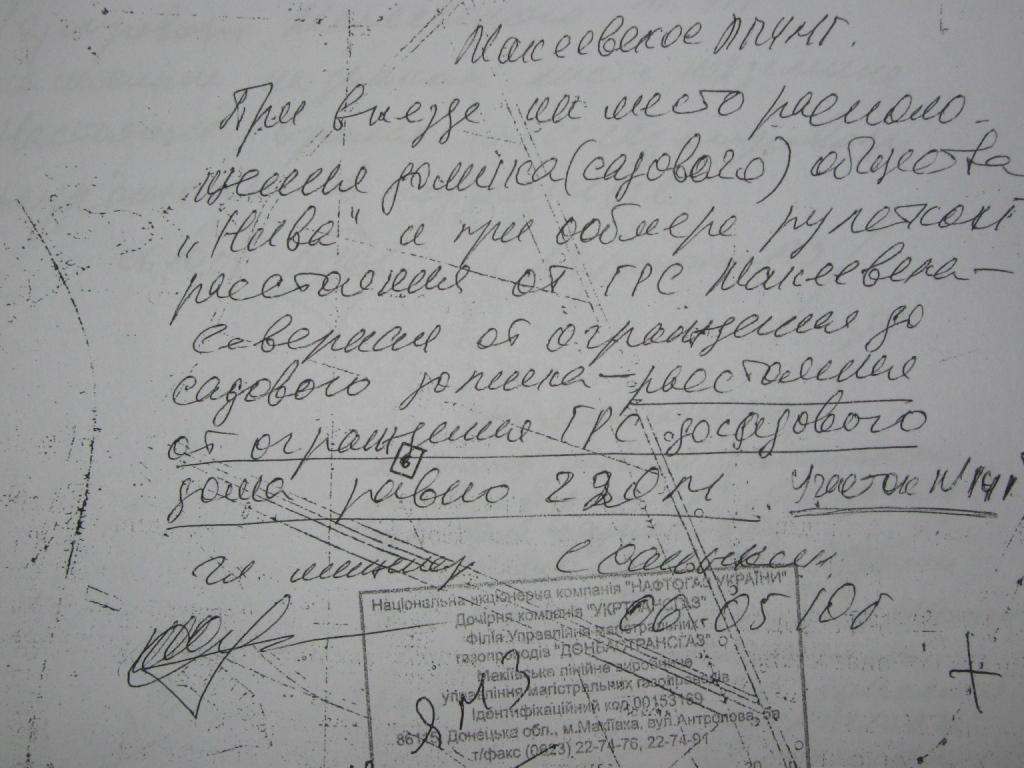 Макеевское ЛПУМГ.
При выезде на место располо-
жения домика (садового) общества
„Нива" и при обмере рулеткой
расстояния от ГРС Макеевка-
Северная от ограждения до
садового домика – расстояния
от ограждения ГРС до садового
дома равно 220 м. Участок №141
6
гл инженер
05
Національна акціонерна компанія "НАФТОГАЗ УКРАЇНИ"
Дочірня компанія "УКРТРАНСГАЗ"
Філія Управління магістральних
газопроводів "ДОНБАСТРАНСГАЗ"
Макіївське лінійне виробниче
управління магістральних газопроводів
Ідентифікаційний код 00153169
Донецька обл., м.Макіївка, вул.Антропова,
т/факс (0623) 22-74-76, 22-74-91